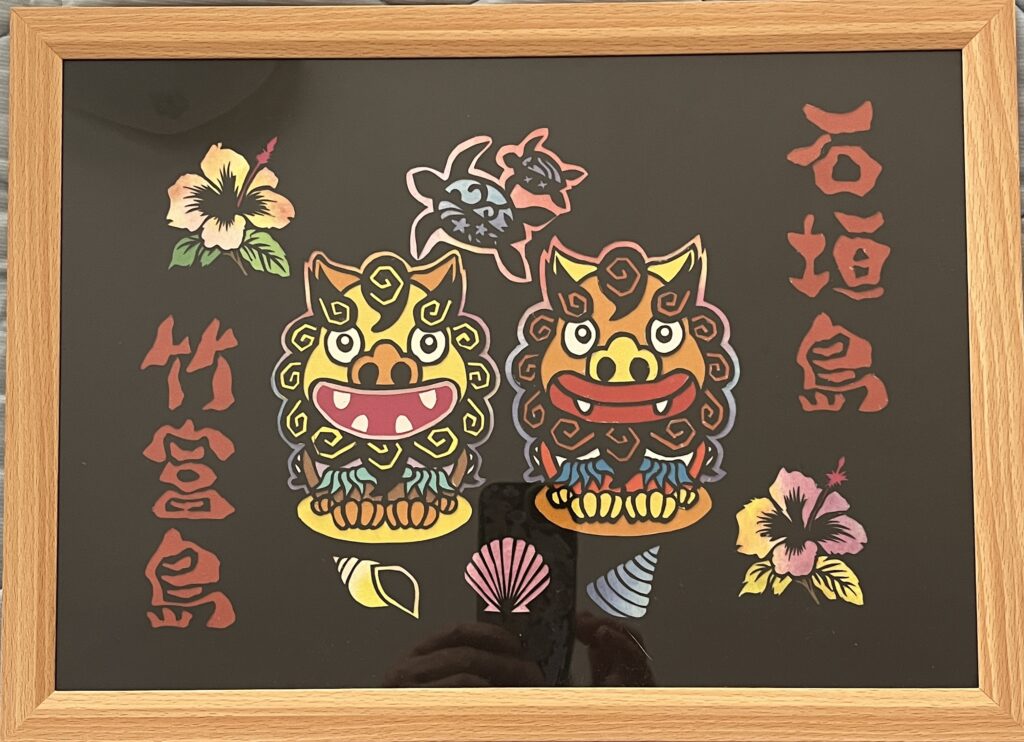 石垣島
竹富島